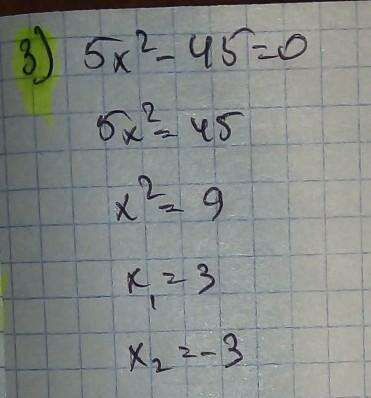 3) 5x² - 45 = 0
5x² = 45
x² = 9
x₁ = 3
x₂ = -3